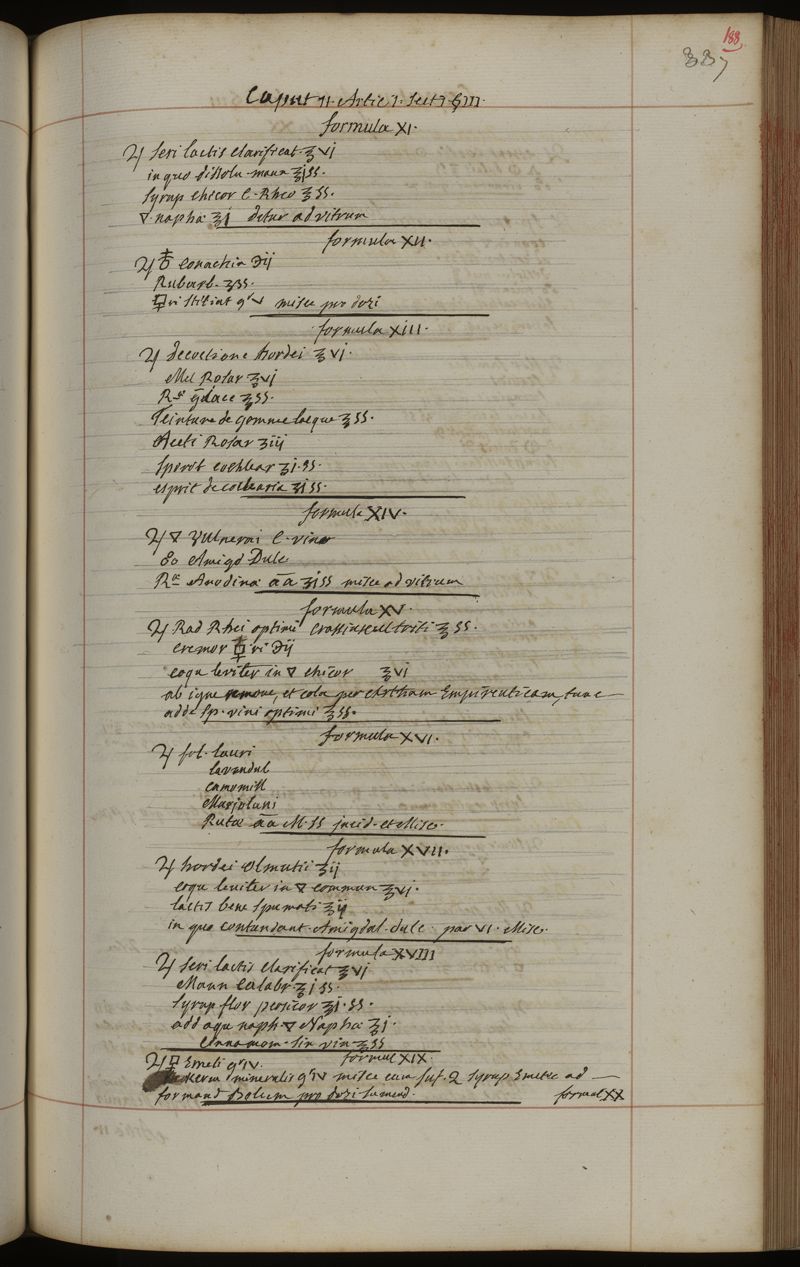 188
337
Caput 11. Artic 1. Sect 7. § III.
formula XI.
♃ Seri lactis clarificat. ℥vj
in quo dissolu- mann ℥jss.
Syrup chicor C. Rheo ℥ss.
🜄 napha ʒj detur ad vitrum
formula XII.
♃ ♁ conachia ℈ij
Rubarb. ʒss.
ri stibiat gr v misce pro dosi
formula XIII.
♃ decoctione hordei ℥vj.
Mel Rosar ℥vj
Teinture de gomme laque ℥ss.
Aceti Rosar ʒiij
Spirit cochlear ʒj.ss.
esprit de coclearia ʒjss.
formula XIV.
♃ 🜄 Vulnerari C. vino
Eo Amigd Dulc
Anodina āā ʒjss misce ad vitrum
formula XV.
♃ Rad Rhei optimi ℥ss.
cremor ri ℈ij
coqu leviter in 🜄 chicor ℥vj
ab igne remove, et cola per chartham Empireuticam, tunc
adde sp. vini optimi ℥ss.
formula XVI.
♃ fol. lauri
lavendul
camomill
Marjolani
Rutæ āā M. ss incid. et Misc.
formula XVII.
♃ hordei ℥ij
coqu leviter in 🜄 commun ℥vj.
lactis bene spumati ℥ij
in quo contundant. Amigdal. dulc. par VI. Misc.
formula XVIII
♃ Seri lactis clarificat ℥vj
Mann calabr ℥jss.
Syrup flor persicor ℥j.ss.
add aqu naph 🜄 Napha ʒj.
Cinnamom. sin vin ʒss
formul XIX.
♃ Emeti gr iv.
Kerm mineralis gr iv misce cum suf. Q Syrup Emetic ad
formand Bolum pro dosi sumend.
formul XX